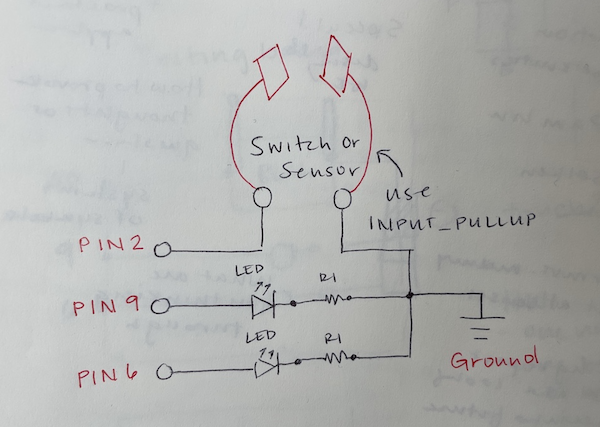 Switch or
Sensor
use
INPUT_PULLUP
PIN2
LED
R1
PIN 9
LED
R1
PIN 6
Ground